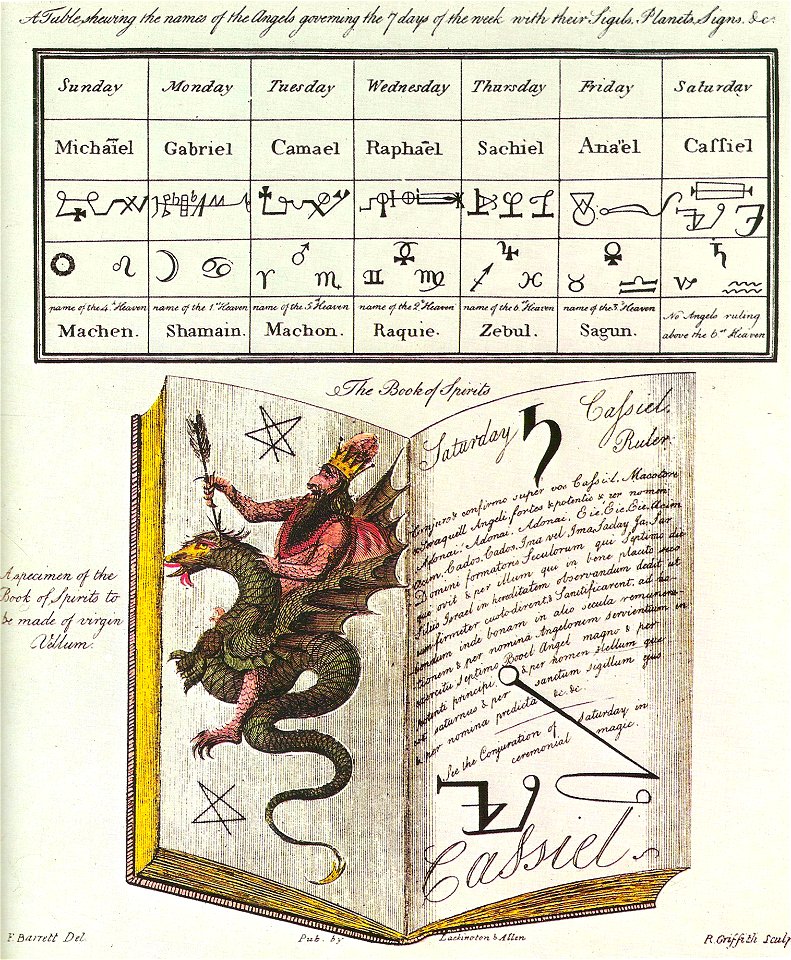 A Table, shewing the names of the Angels governing the 7 days of the week with their Sigils, Planets, Signs, &c.
Sunday Monday Tuesday Wednesday Thursday Friday Saturday
Michaïel Gabriel Camael Raphaël Sachiel Anaël Caſſiel
name of the 4.th Heaven name of the 1.st Heaven name of the 5.th Heaven name of the 2.d Heaven name of the 6.th Heaven name of the 3.d Heaven No Angels ruling
Machen. Shamain. Machon. Raquie. Zebul. Sagun. above the 6.th Heaven
The Book of Spirits
Saturday ♄ Caſsiel
Ruler
Conjuro & confirmo super vos Caſsiel. Macotore
& Seraquiel Angeli fortes & potentis & per nomen:
Adonai. Adonai. Adonai. Eie. Eie. Eie. Acim
Acim. Cados. Cados. Ina vel Ima. Saday Ja. Sar
Domini formatoris Seculorum qui Septimo die
quo ovit & per illum qui in bene placito suo
filiis Israel in hereditatem observandum dedit ut
eum firmiter custodirent & Santificarent. ad ha
bendam inde bonam in alio secula remunera
tionem & per nomina Angelorum servientium in
exercitu Septimo Booel Angel magno & per
potenti principi & per nomen stellum que
est saturnus & per sanctum sigillum ejus
& per nomina predicta &c. &c.
See the Conjuration of Saturday in
ceremonial magic.
Caſsiel
A specimen of the
Book of Spirits to
be made of virgin
Vellum.
F. Barrett Del. Pub. by Lackington & Allen R. Griffith Sculp